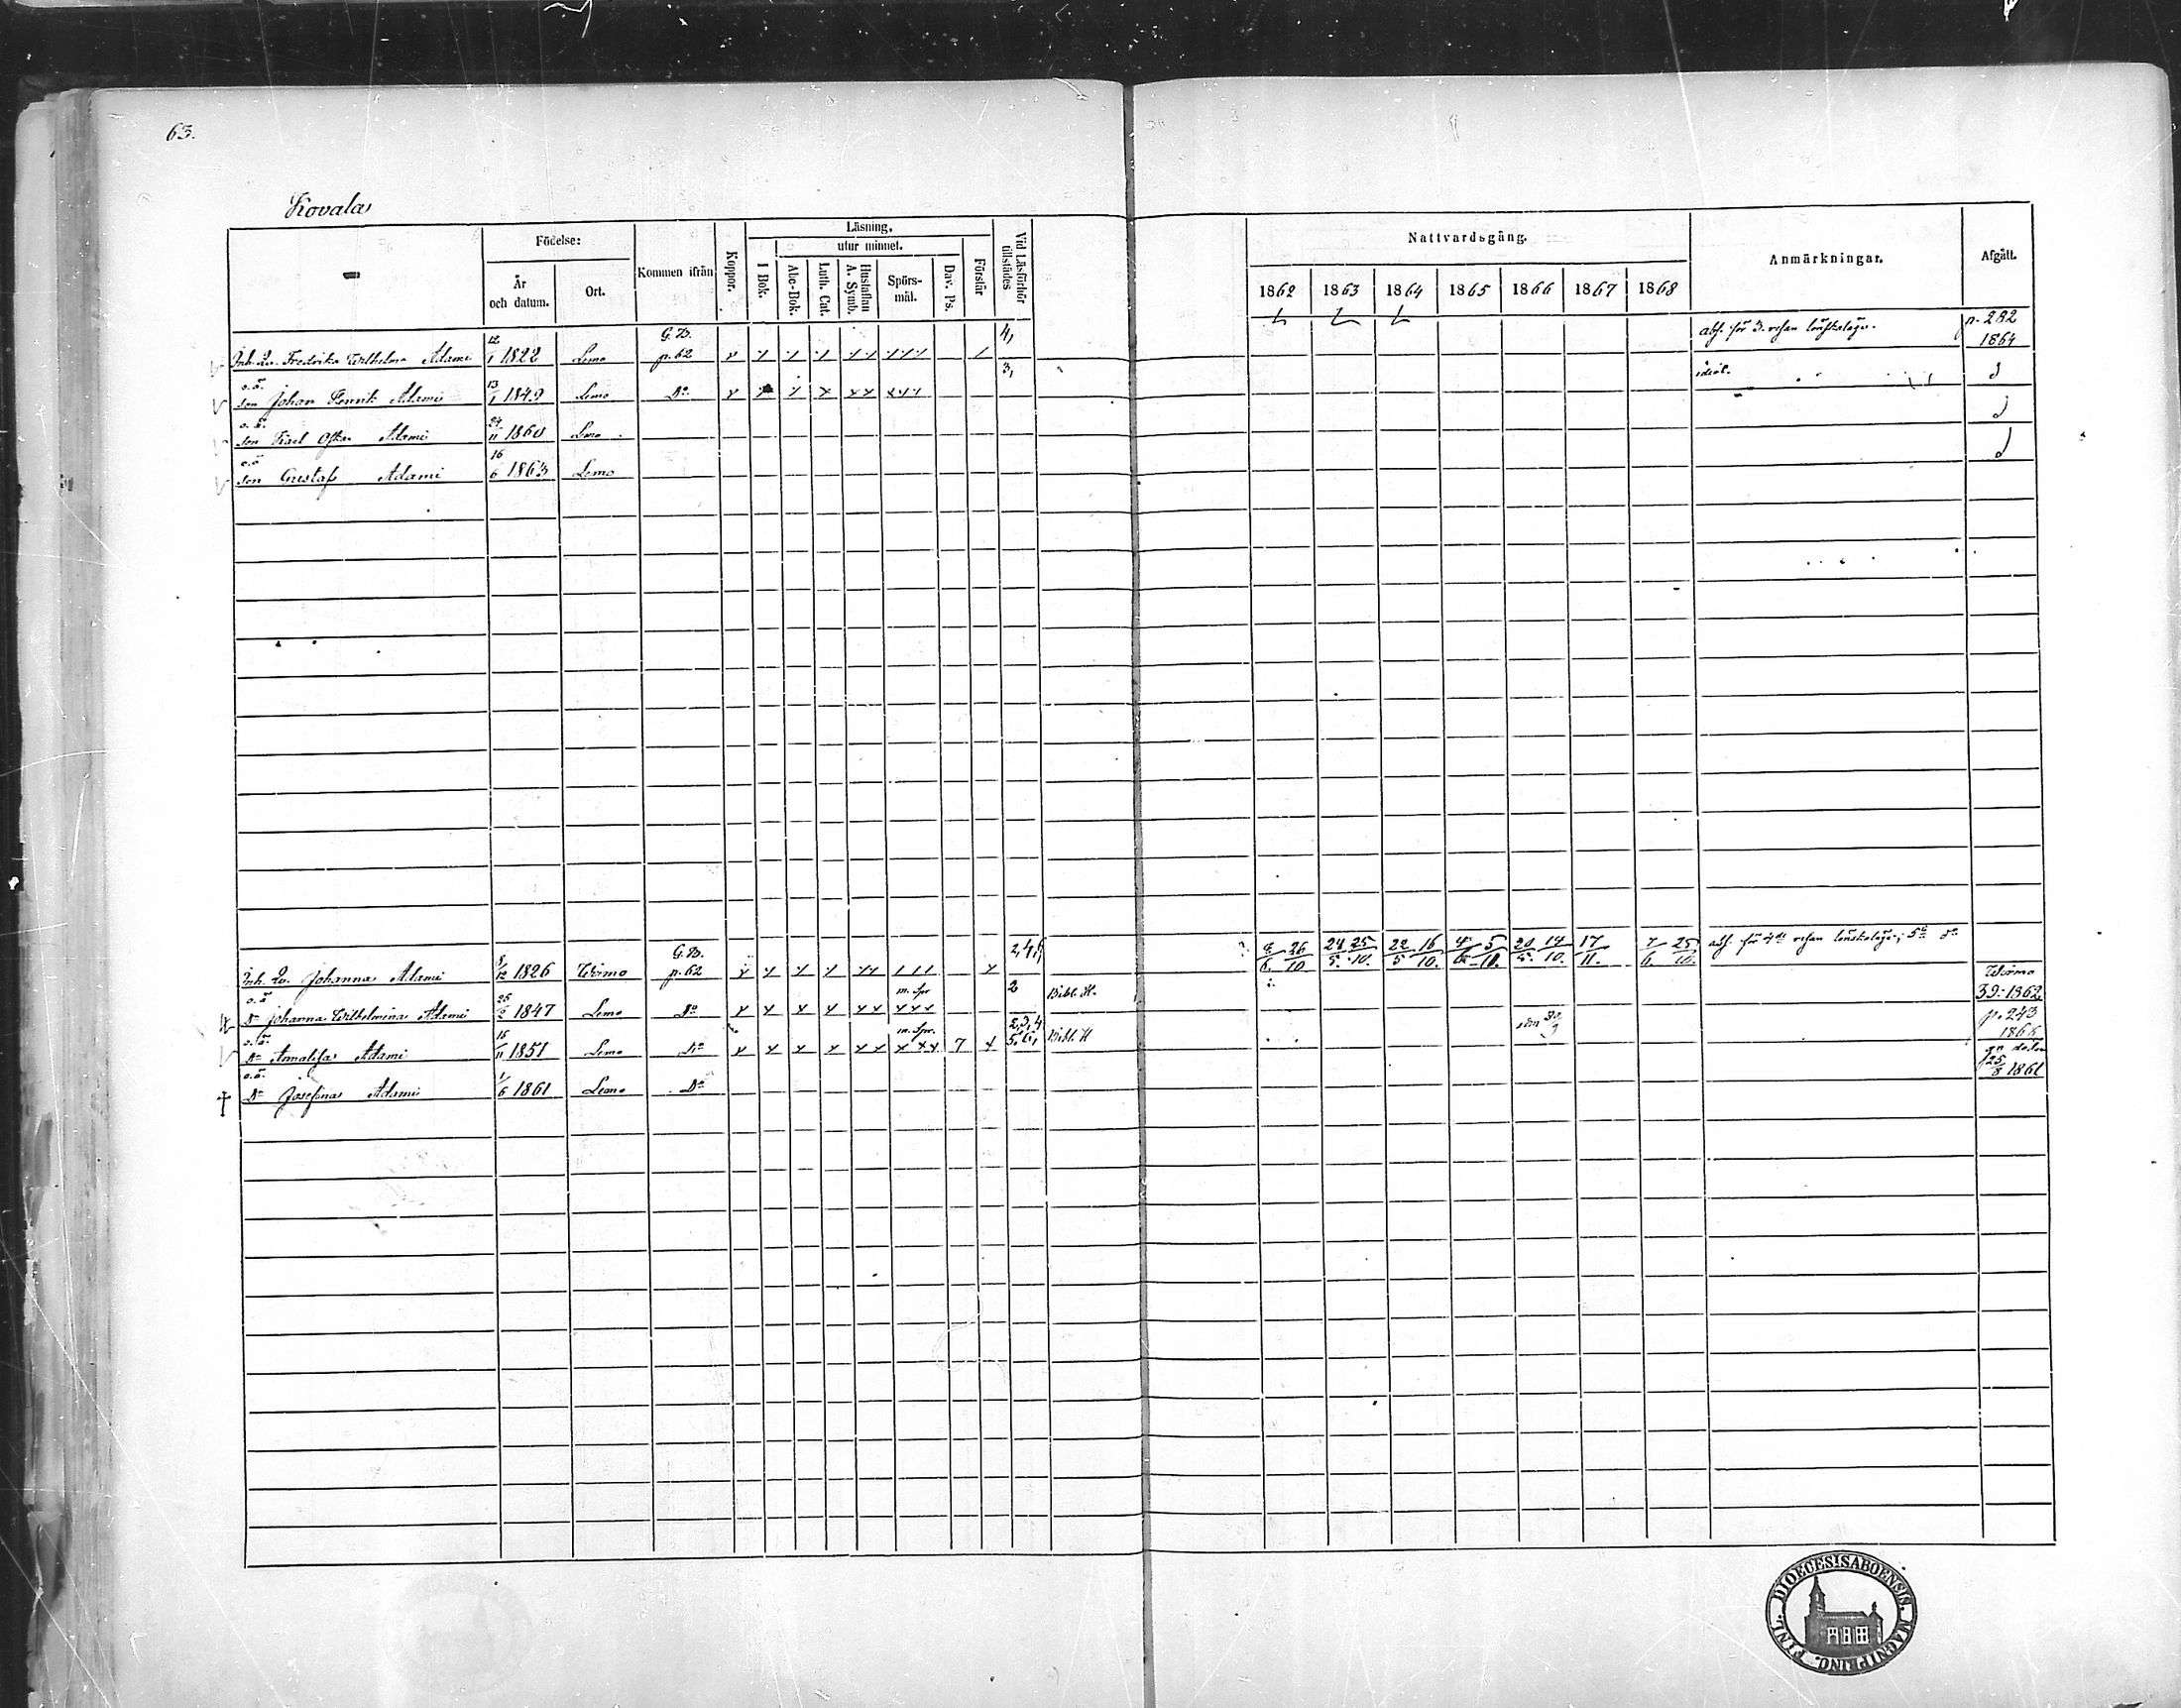 63.
Kovala
Födelse:
År och datum.
Ort.
Kommen ifrån
Koppor.
Läsning.
I Bok.
utur minnet.
Abc-Bok.
Luth. Cat.
Hustaflan A. Symb.
Spörsmål.
Dav. Ps.
Förstår
Vid Läsförhör tillstädes
Nattvardsgång.
1862 1863 1864 1865 1866 1867 1868
Anmärkningar.
Afgått.
Inh. Qv. Fredrika Wilhelmina Adami 12/1 1822 Lemo G.B. p. 62 4, abs. för 3. resan p. 282 1864
o.ä. son Johan Henrik Adami 13/1 1849 Lemo Do 3,
o.ä. son Karl Oskar Adami 24/11 1860 Lemo
o.ä. son Gustaf Adami 16/6 1863 Lemo
Inh. Qv. Johanna Adami 8/12 1826 Wirmo G.B. p. 62 2,4,6 8/6 26/10 24/5 25/10 22/5 16/10 4/6 5/11 20/5 14/10 17/11 7/6 25/10
o.ä. Dr Johanna Wilhelmina Adami 25/2 1847 Lemo Do m. Spr 2 Bibl. H. Wirmo 39. 1862
o.ä. Dr Amalisa Adami 15/11 1851 Lemo Do m. Spr. 7 2,3,4 5,6, Bibl. H p. 243 1866
o.ä. Dr Josefina Adami 1/6 1861 Lemo Do 25/8 1861
DIOECESIS ABOENSIS. MAGN. PRINC. FINL.